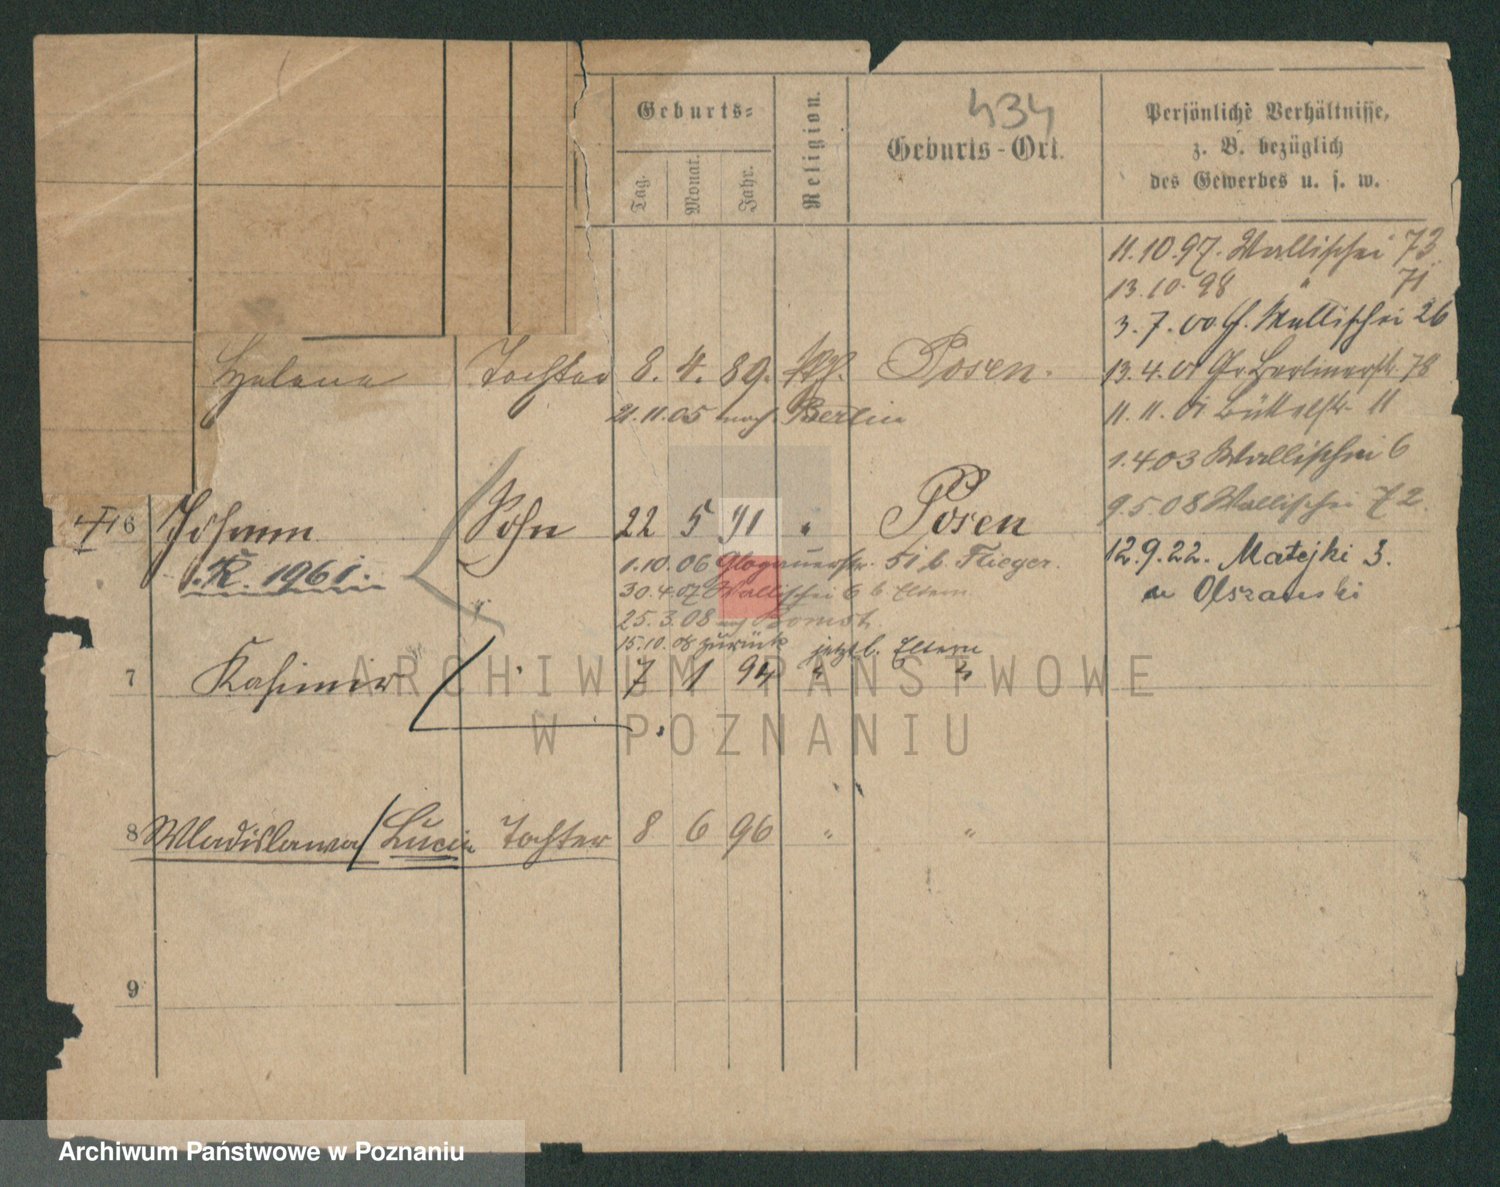 434
Geburts-
Tag.
Monat.
Jahr.
Religion.
Geburts-Ort.
Persönliche Verhältnisse,
z. B. bezüglich
des Gewerbes u. s. w.
11.10.97. Wallischei 73
13.10.98 " 71
3.7.00 Wallischei 26
Helene Tochter 8. 4. 89. kth. Posen.
13.4.01 Gr. Berlinerstr. 78
21.11.05 nach Berlin
11.11.01 Büttelstr. 11
1.4.03 Wallischei 6
9.5.08 Wallischei 72.
6 Johann Sohn 22 5 91 " Posen
K. 1961.
1.10.06 Glogauerstr. 51 b. Flieger.
12.9.22. Matejki 3.
30.4.07 Wallischei 6 b. Eltern
u Olszanski
25.3.08 Bomst.
15.10.08 zurück jetzt b. Eltern
7 Kasimir " 7 1 94 " "
8 Wladislawa / Lucie Tochter 8 6 96 " "
9
ARCHIWUM PAŃSTWOWE
W POZNANIU
Archiwum Państwowe w Poznaniu